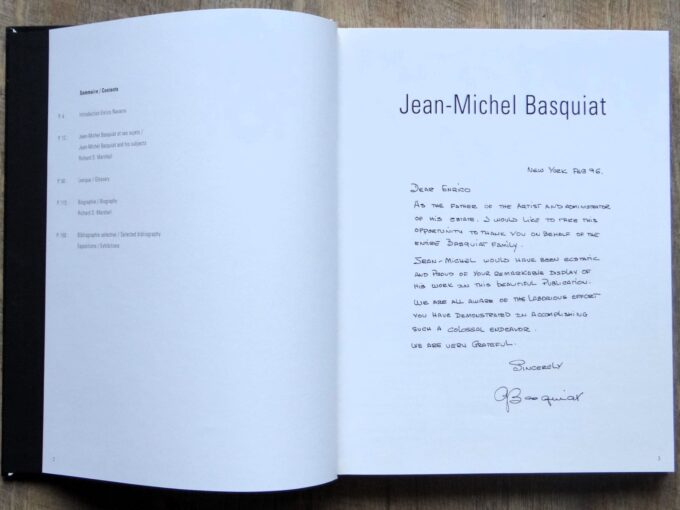 Sommaire / Contents
P. 6 Introduction Enrico Navarra
Jean-Michel Basquiat et ses sujets /
Jean-Michel Basquiat and his subjects
Richard D. Marshall
Lexique / Glossary
Biographie / Biography
Richard D. Marshall
Bibliographie sélective / Selected bibliography
Expositions / Exhibitions
2
Jean-Michel Basquiat
NEW YORK FEB 96.
DEAR ENRICO
AS THE FATHER OF THE ARTIST AND ADMINISTRATOR
OF HIS ESTATE. I WOULD LIKE TO TAKE THIS
OPPORTUNITY TO THANK YOU ON BEHALF OF THE
ENTIRE BASQUIAT FAMILY.
JEAN-MICHEL WOULD HAVE BEEN ECSTATIC
AND PROUD OF YOUR REMARKABLE DISPLAY OF
HIS WORK IN THIS BEAUTIFUL PUBLICATION.
WE ARE ALL AWARE OF THE LABORIOUS EFFORT
YOU HAVE DEMONSTRATED IN ACCOMPLISHING
SUCH A COLOSSAL ENDEAVOR.
WE ARE VERY GRATEFUL.
SINCERELY
GBasquiat
3